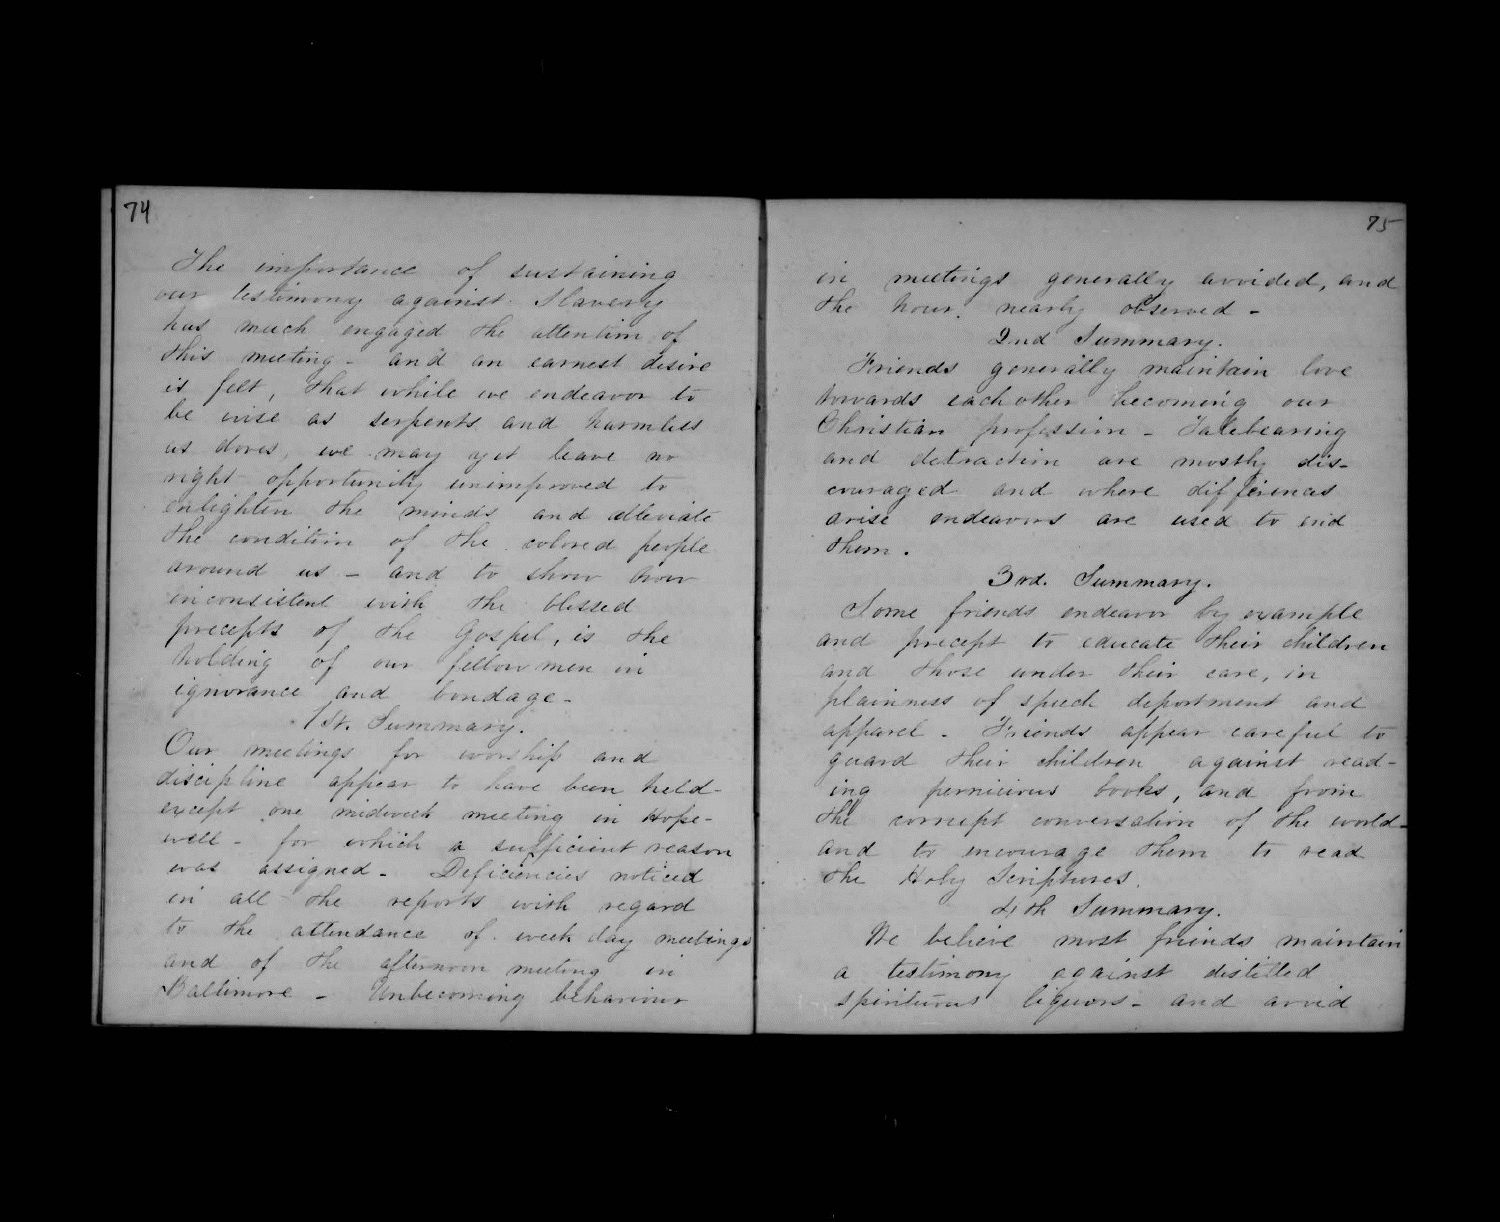 74
The importance of sustaining
our testimony against Slavery
has much engaged the attention of
this meeting - and an earnest desire
is felt, that while we endeavor to
be wise as serpents and harmless
as doves, we may yet leave no
right opportunity unimproved to
enlighten the minds and alleviate
the condition of the colored people
around us - and to show how
inconsistent with the blessed
precepts of the Gospel, is the
holding of our fellow men in
ignorance and bondage -
1st. Summary.
Our meetings for worship and
discipline appear to have been held -
except one midweek meeting in Hope-
well - for which a sufficient reason
was assigned - Deficiencies noticed
in all the reports with regard
to the attendance of week day meetings
and of the afternoon meeting in
Baltimore - Unbecoming behaviour
75
in meetings generally avoided, and
the hour nearly observed -
2nd Summary.
Friends generally maintain love
towards each other becoming our
Christian profession - Talebearing
and detraction are mostly dis-
couraged and where differences
arise endeavors are used to end
them.
3rd. Summary.
Some friends endeavor by example
and precept to educate their children
and those under their care, in
plainness of speech deportment and
apparel - Friends appear careful to
guard their children against read-
ing pernicious books, and from
the corrupt conversation of the world -
and to encourage them to read
the Holy Scriptures.
4th Summary.
We believe most friends maintain
a testimony against distilled
spirituous liquors - and avoid